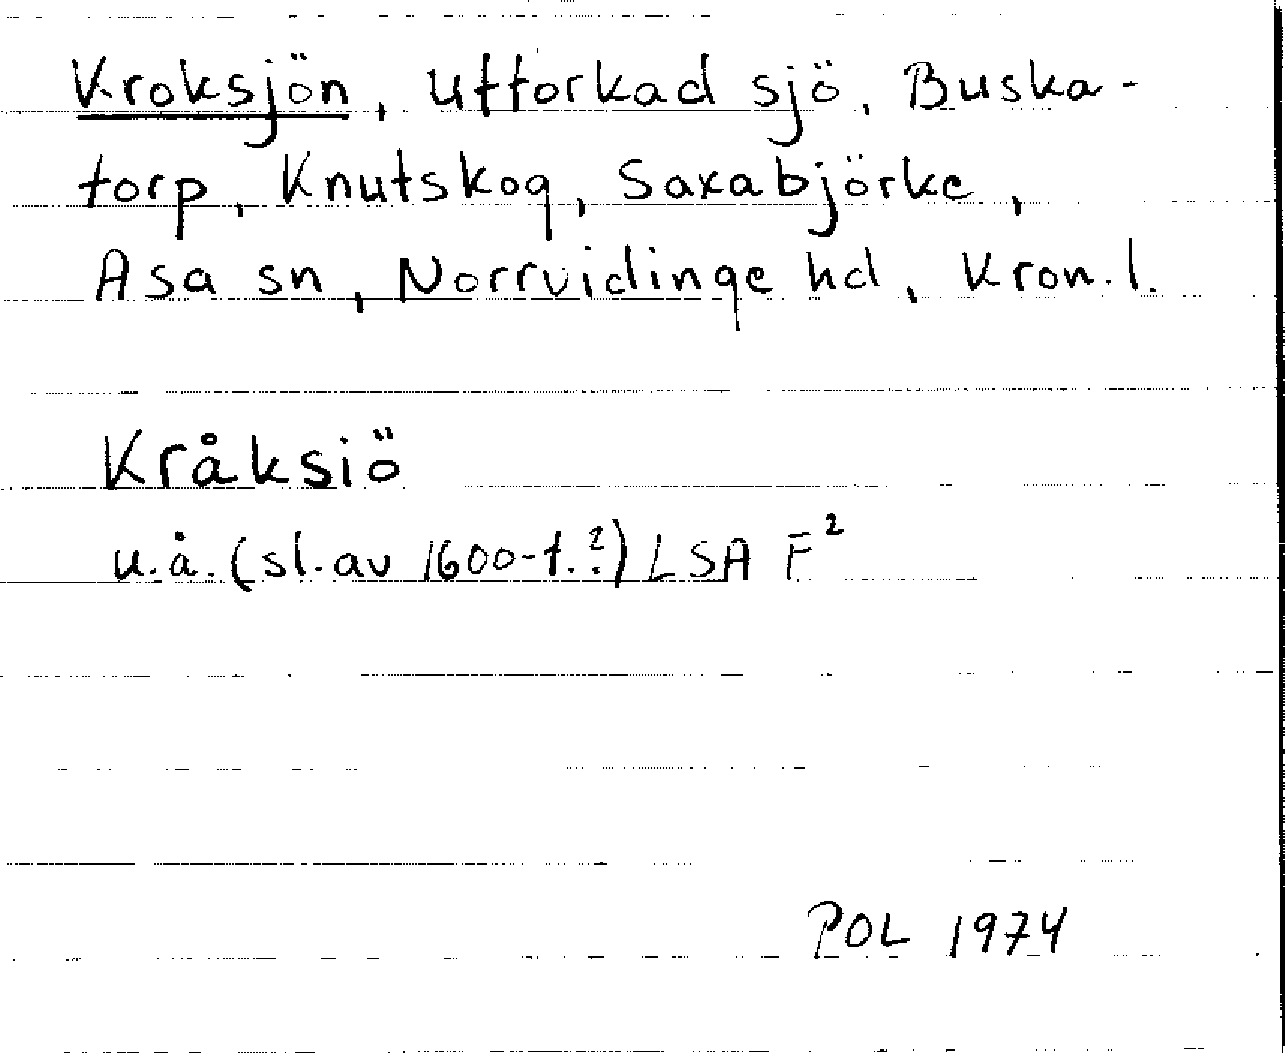 Kroksjön, uttorkad sjö, Buska-
torp, Knutskog, Saxabjörke,
Asa sn, Norrvidinge hd, Kron.l.
Kråksiö
u.å. (sl. av 1600-t.?) LSA F²
POL 1974